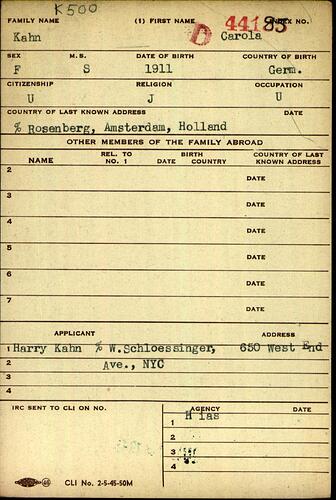 K500
FAMILY NAME (1) FIRST NAME INDEX NO.
Kahn D Carola 44185
SEX M.S. DATE OF BIRTH COUNTRY OF BIRTH
F S 1911 Germ.
CITIZENSHIP RELIGION OCCUPATION
U J U
COUNTRY OF LAST KNOWN ADDRESS DATE
% Rosenberg, Amsterdam, Holland
OTHER MEMBERS OF THE FAMILY ABROAD
NAME REL. TO NO. 1 BIRTH DATE COUNTRY COUNTRY OF LAST KNOWN ADDRESS
2 DATE
3 DATE
4 DATE
5 DATE
6 DATE
7 DATE
APPLICANT ADDRESS
1 Harry Kahn % W.Schloessinger, 650 West End
2 Ave., NYC
3
4
IRC SENT TO CLI ON NO. AGENCY DATE
Hias
1
2
3
4
CLI No. 2-5-45-50M